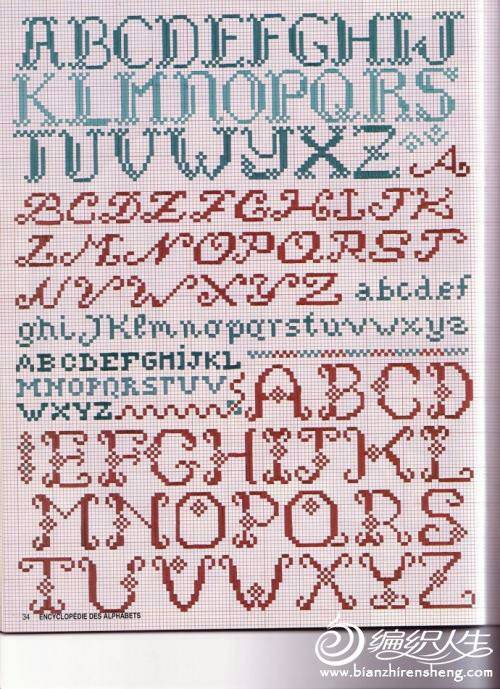 ABCDEFGHIJ
KLMNOPQRS
TUVWXYZ
A
BCDEFGHIJK
LMNOPQRST
UVWXYZ
abcdef
ghijklmnopqrstuvwxyz
ABCDEFGHIJKL
MNOPQRSTUV
WXYZ
ABCD
EFGHIJKL
MNOPQRS
TUVWXYZ
34 ENCYCLOPÉDIE DES ALPHABETS
编织人生
www.bianzhirensheng.com